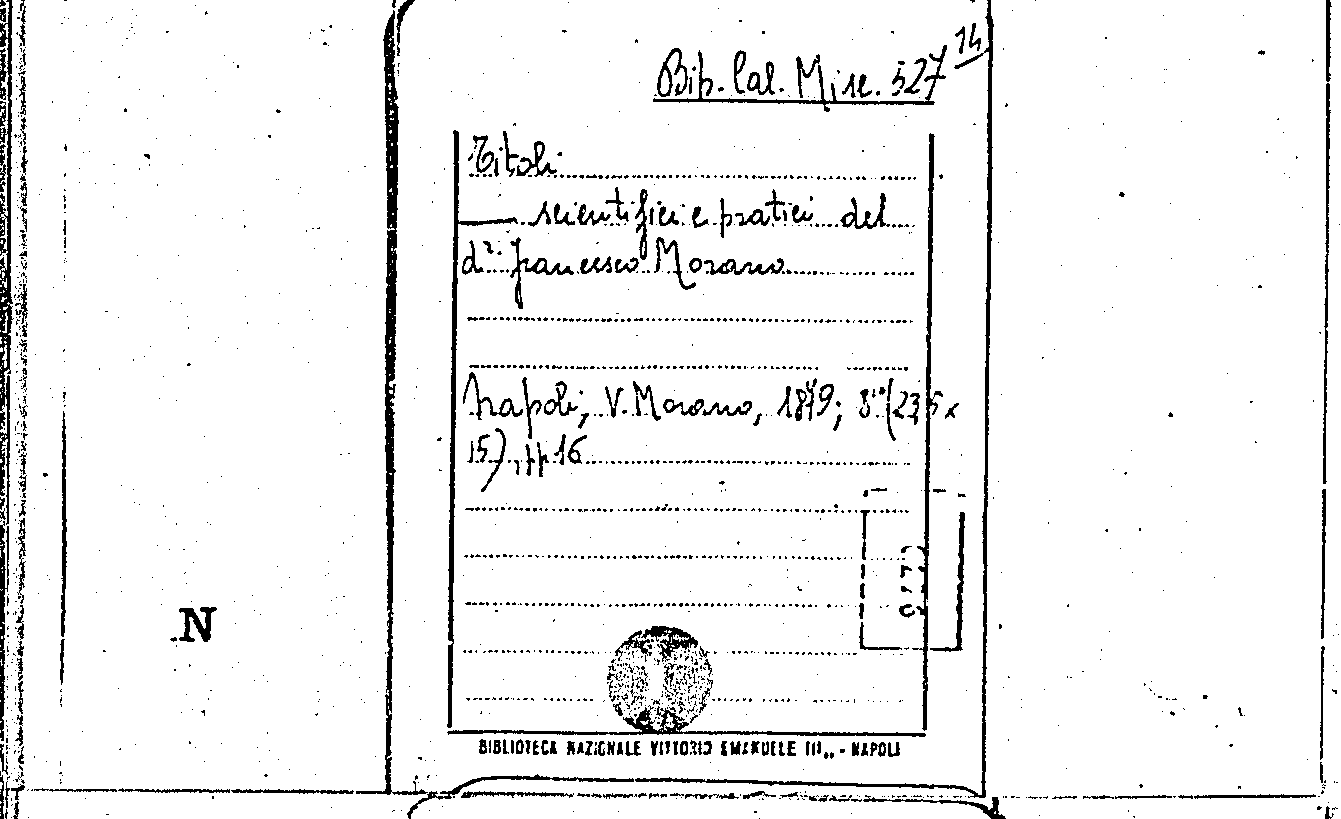 Bib. Cal. Misc. 527 14
Titoli
—— scientifici e pratici del
dr. Francesco Morano
Napoli, V. Morano, 1879; 8° (23,5 x
15), pp 16
N
BIBLIOTECA NAZIONALE VITTORIO EMANUELE III„ - NAPOLI